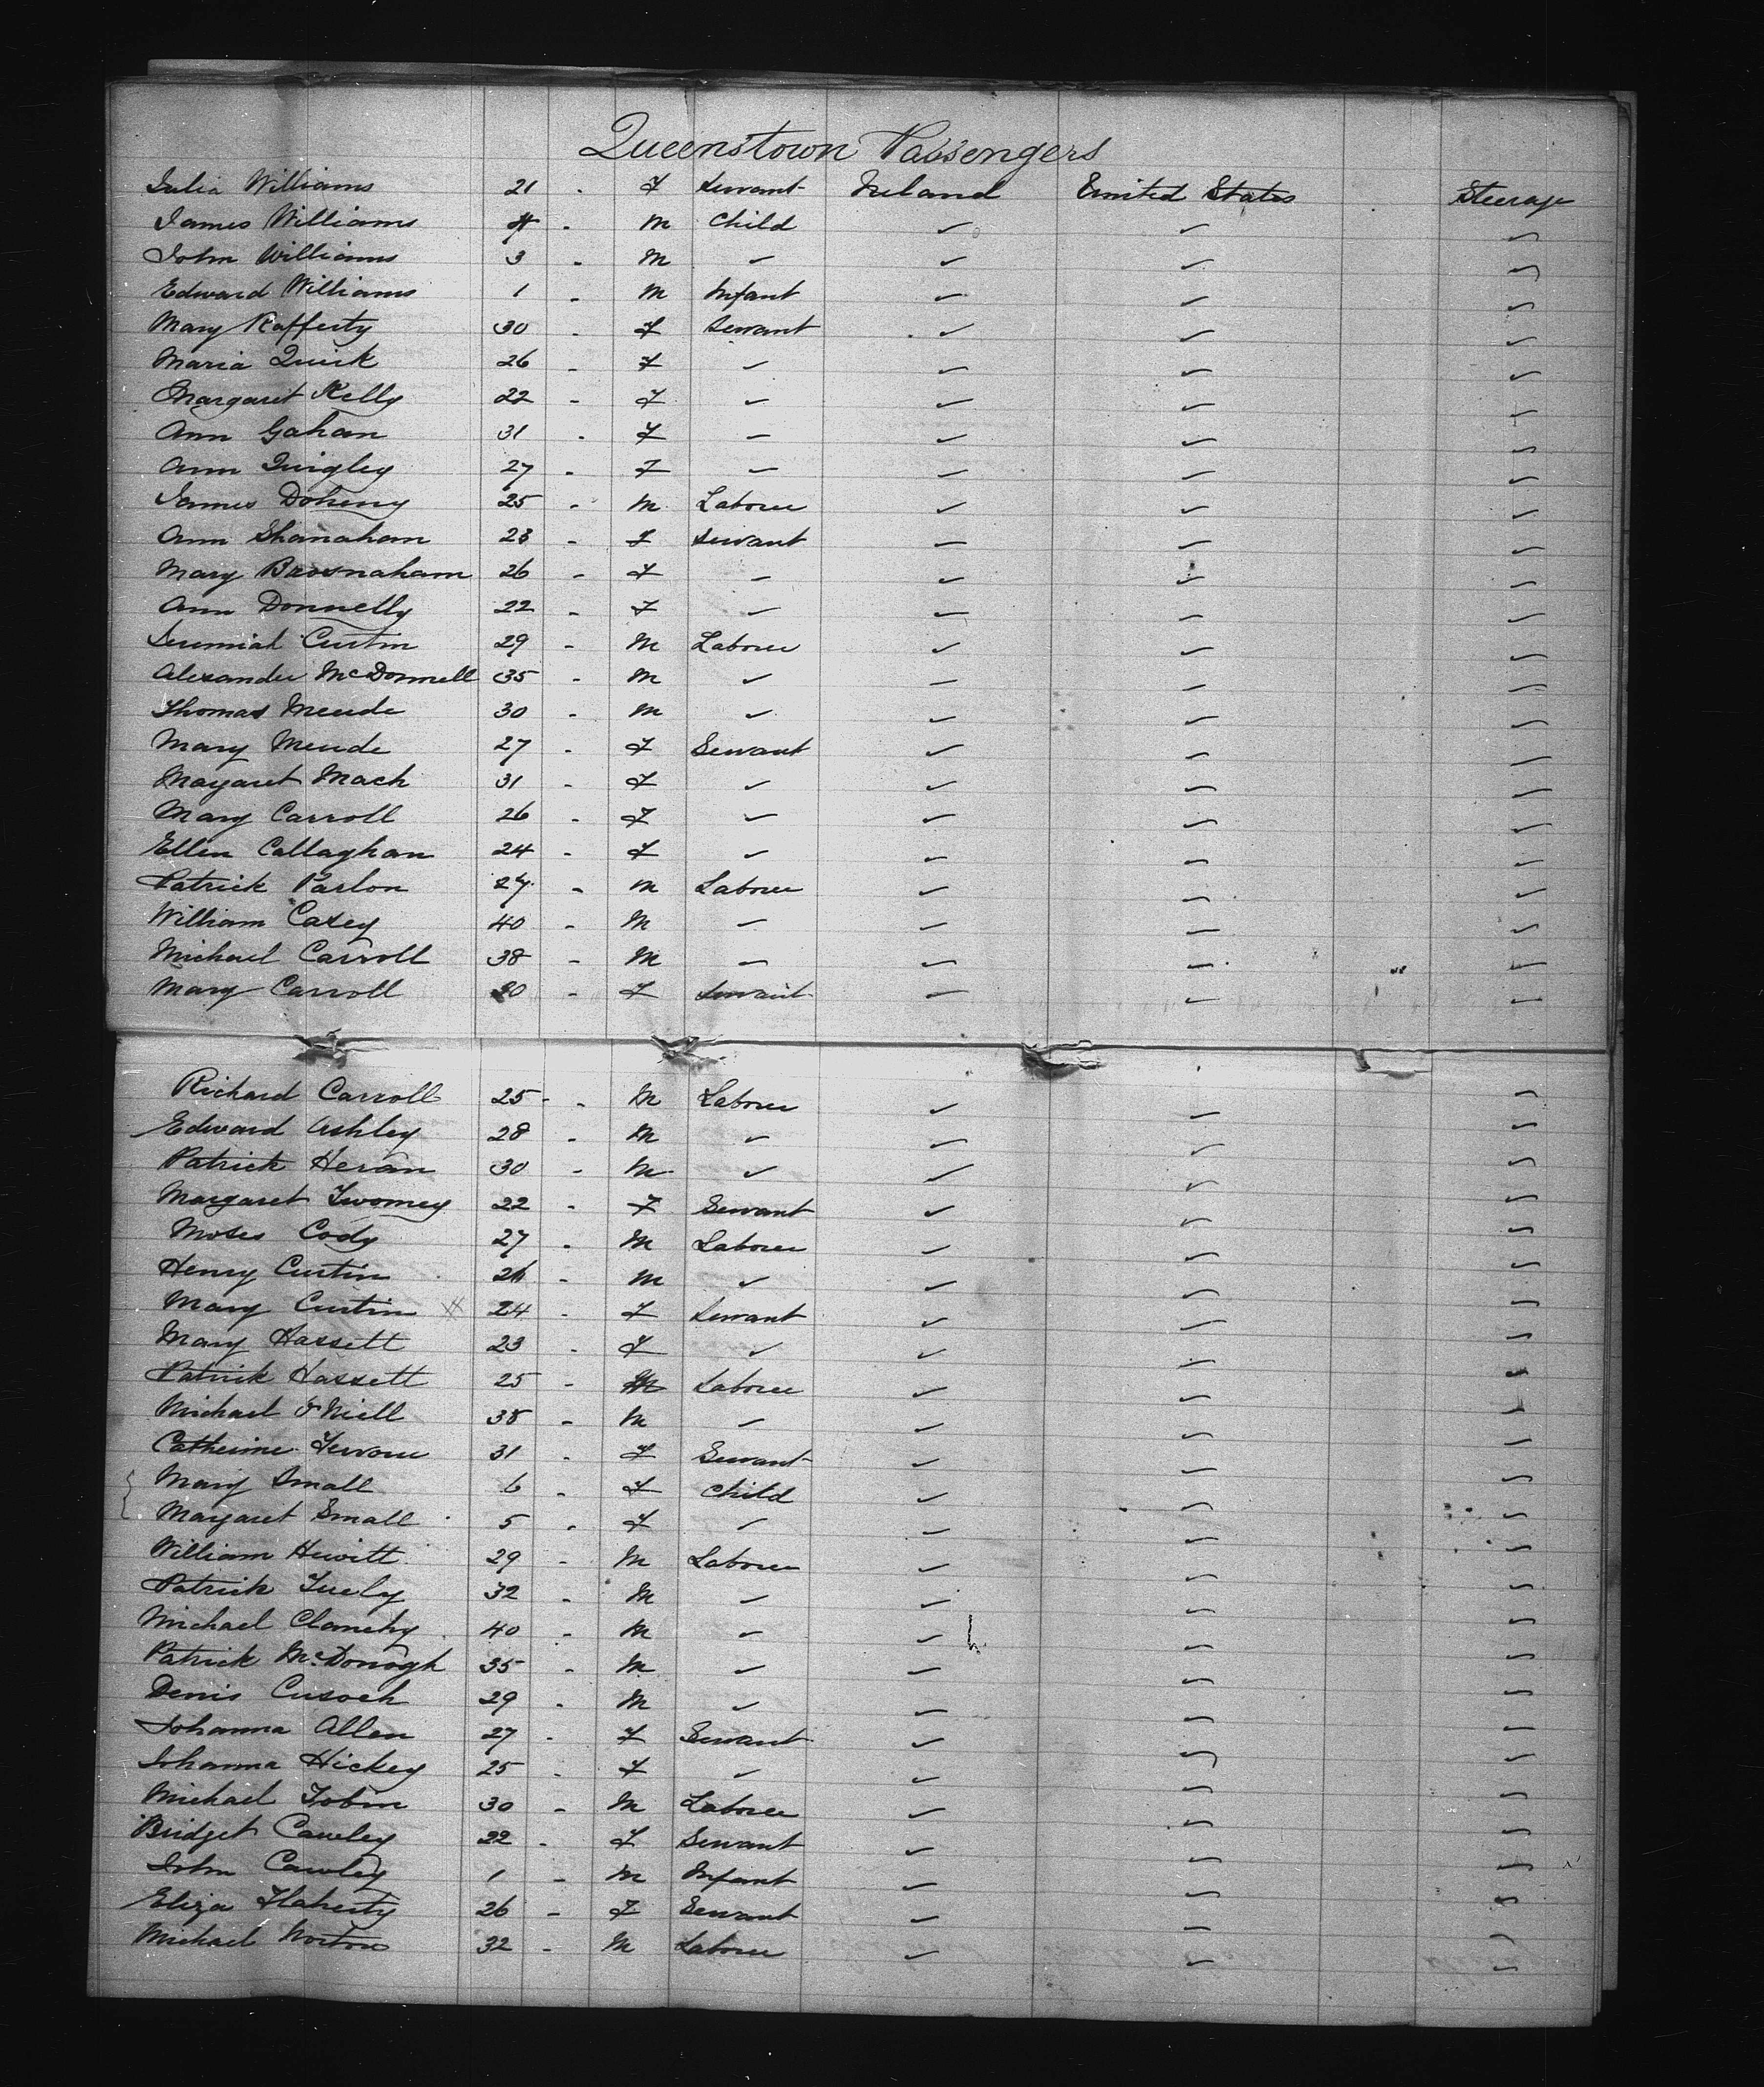 Queenstown Passengers
Julia Williams 21 - F Servant Ireland United States Steerage
James Williams 4 - M Child ✓ ✓ ✓
John Williams 3 - M ✓ ✓ ✓ ✓
Edward Williams 1 - M Infant ✓ ✓ ✓
Mary Rafferty 30 - F Servant ✓ ✓ ✓
Maria Quirk 26 - F ✓ ✓ ✓ ✓
Margaret Kelly 22 - F ✓ ✓ ✓ ✓
Ann Gahan 31 - F ✓ ✓ ✓ ✓
Ann Quigley 27 - F ✓ ✓ ✓ ✓
James Doheny 25 - M Laborer ✓ ✓ ✓
Ann Shanahan 23 - F Servant ✓ ✓ ✓
Mary Brosnaham 26 - F ✓ ✓ ✓ ✓
Ann Donnelly 22 - F ✓ ✓ ✓ ✓
Jeremiah Curtin 29 - M Laborer ✓ ✓ ✓
Alexander McDonnell 35 - M ✓ ✓ ✓ ✓
Thomas Meade 30 - M ✓ ✓ ✓ ✓
Mary Meade 27 - F Servant ✓ ✓ ✓
Margaret Mack 31 - F ✓ ✓ ✓ ✓
Mary Carroll 26 - F ✓ ✓ ✓ ✓
Ellen Callaghan 24 - F ✓ ✓ ✓ ✓
Patrick Parlon 27 - M Laborer ✓ ✓ ✓
William Casey 40 - M ✓ ✓ ✓ ✓
Michael Carroll 38 - M ✓ ✓ ✓ ✓
Mary Carroll 30 - F Servant ✓ ✓ ✓
Richard Carroll 25 - M Laborer ✓ ✓ ✓
Edward Ashley 28 - M ✓ ✓ ✓ ✓
Patrick Heran 30 - M ✓ ✓ ✓ ✓
Margaret Twomey 22 - F Servant ✓ ✓ ✓
Moses Cody 27 - M Laborer ✓ ✓ ✓
Henry Curtin 26 - M ✓ ✓ ✓ ✓
Mary Curtin 24 - F Servant ✓ ✓ ✓
Mary Hassett 23 - F ✓ ✓ ✓ ✓
Patrick Hassett 25 - M Laborer ✓ ✓ ✓
Michael O'Niell 38 - M ✓ ✓ ✓ ✓
Catherine 31 - F Servant ✓ ✓ ✓
Mary Small 6 - F Child ✓ ✓ ✓
Margaret Small 5 - F ✓ ✓ ✓ ✓
William Hewitt 29 - M Laborer ✓ ✓ ✓
Patrick 32 - M ✓ ✓ ✓ ✓
Michael Clanchy 40 - M ✓ ✓ ✓ ✓
Patrick McDonogh 35 - M ✓ ✓ ✓ ✓
Denis Cusack 29 - M ✓ ✓ ✓ ✓
Johanna Allen 27 - F Servant ✓ ✓ ✓
Johanna Hickey 25 - F ✓ ✓ ✓ ✓
Michael Tobin 30 - M Laborer ✓ ✓ ✓
Bridget Cawley 22 - F Servant ✓ ✓ ✓
John Cawley 1 - M Infant ✓ ✓ ✓
Eliza Flaherty 26 - F Servant ✓ ✓ ✓
Michael Norton 32 - M Laborer ✓ ✓ ✓